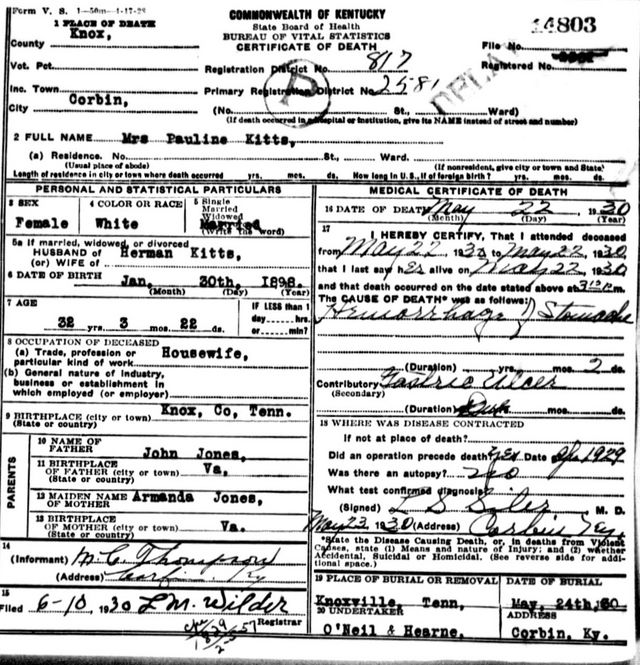 Form V. S. 1-50m-1-17-28
COMMONWEALTH OF KENTUCKY
State Board of Health
BUREAU OF VITAL STATISTICS
CERTIFICATE OF DEATH
14803
File No.
Registered No.
1 PLACE OF DEATH
County Knox,
Vot. Pct.
Inc. Town
City Corbin,
Registration District No. 817
Primary Registration District No. 2581
(No. St., Ward)
(If death occurred in a hospital or institution, give its NAME instead of street and number)
2 FULL NAME Mrs Pauline Kitts,
(a) Residence. No. St., Ward.
(Usual place of abode) (If nonresident, give city or town and State)
Length of residence in city or town where death occurred yrs. mos. ds. How long in U. S., if of foreign birth? yrs. mos. ds.
PERSONAL AND STATISTICAL PARTICULARS
3 SEX
Female
4 COLOR OR RACE
White
5 Single
Married
Widowed
Married
(Write the word)
5a If married, widowed, or divorced
HUSBAND OF Herman Kitts,
(or) WIFE OF
6 DATE OF BIRTH Jan, 30th, 1898,
(Month) (Day) (Year)
7 AGE
32 yrs. 3 mos. 22 ds.
IF LESS than 1
day hrs.
or min.?
8 OCCUPATION OF DECEASED
(a) Trade, profession or
particular kind of work Housewife,
(b) General nature of industry,
business or establishment in
which employed (or employer)
9 BIRTHPLACE (city or town) Knox, Co, Tenn.
(State or country)
PARENTS
10 NAME OF
FATHER John Jones,
11 BIRTHPLACE
OF FATHER (city or town) Va.
(State or country)
12 MAIDEN NAME
OF MOTHER Armanda Jones,
13 BIRTHPLACE
OF MOTHER (city or town) Va.
(State or country)
14
(Informant) M. C. Thompson
(Address) Corbin Ky
15
Filed 6-10, 1930 L. M. Wilder
Registrar
MEDICAL CERTIFICATE OF DEATH
16 DATE OF DEATH May 22, 1930
(Month) (Day) (Year)
17
I HEREBY CERTIFY, That I attended deceased
from May 22 1930 to May 22 1930
that I last saw her alive on May 22 1930
and that death occurred on the date stated above at P.m.
The CAUSE OF DEATH* was as follows:
Hemorrhage of Stomache
(Duration) yrs. mos. 2 ds.
Contributory Gastric Ulcer
(Secondary)
(Duration) mos. ds.
18 WHERE WAS DISEASE CONTRACTED
If not at place of death?
Did an operation precede death? Yes Date 1929
Was there an autopsy? no
What test confirmed diagnosis?
(Signed) L S Siler M. D.
May 23, 1930 (Address) Corbin Ky
*State the Disease Causing Death, or, in deaths from Violent
Causes, state (1) Means and nature of Injury; and (2) whether
Accidental, Suicidal or Homicidal. (See reverse side for addi-
tional space.)
19 PLACE OF BURIAL OR REMOVAL
Knoxville, Tenn,
DATE OF BURIAL
May, 24th, 30
20 UNDERTAKER
O'Neil & Hearne,
Corbin, Ky.